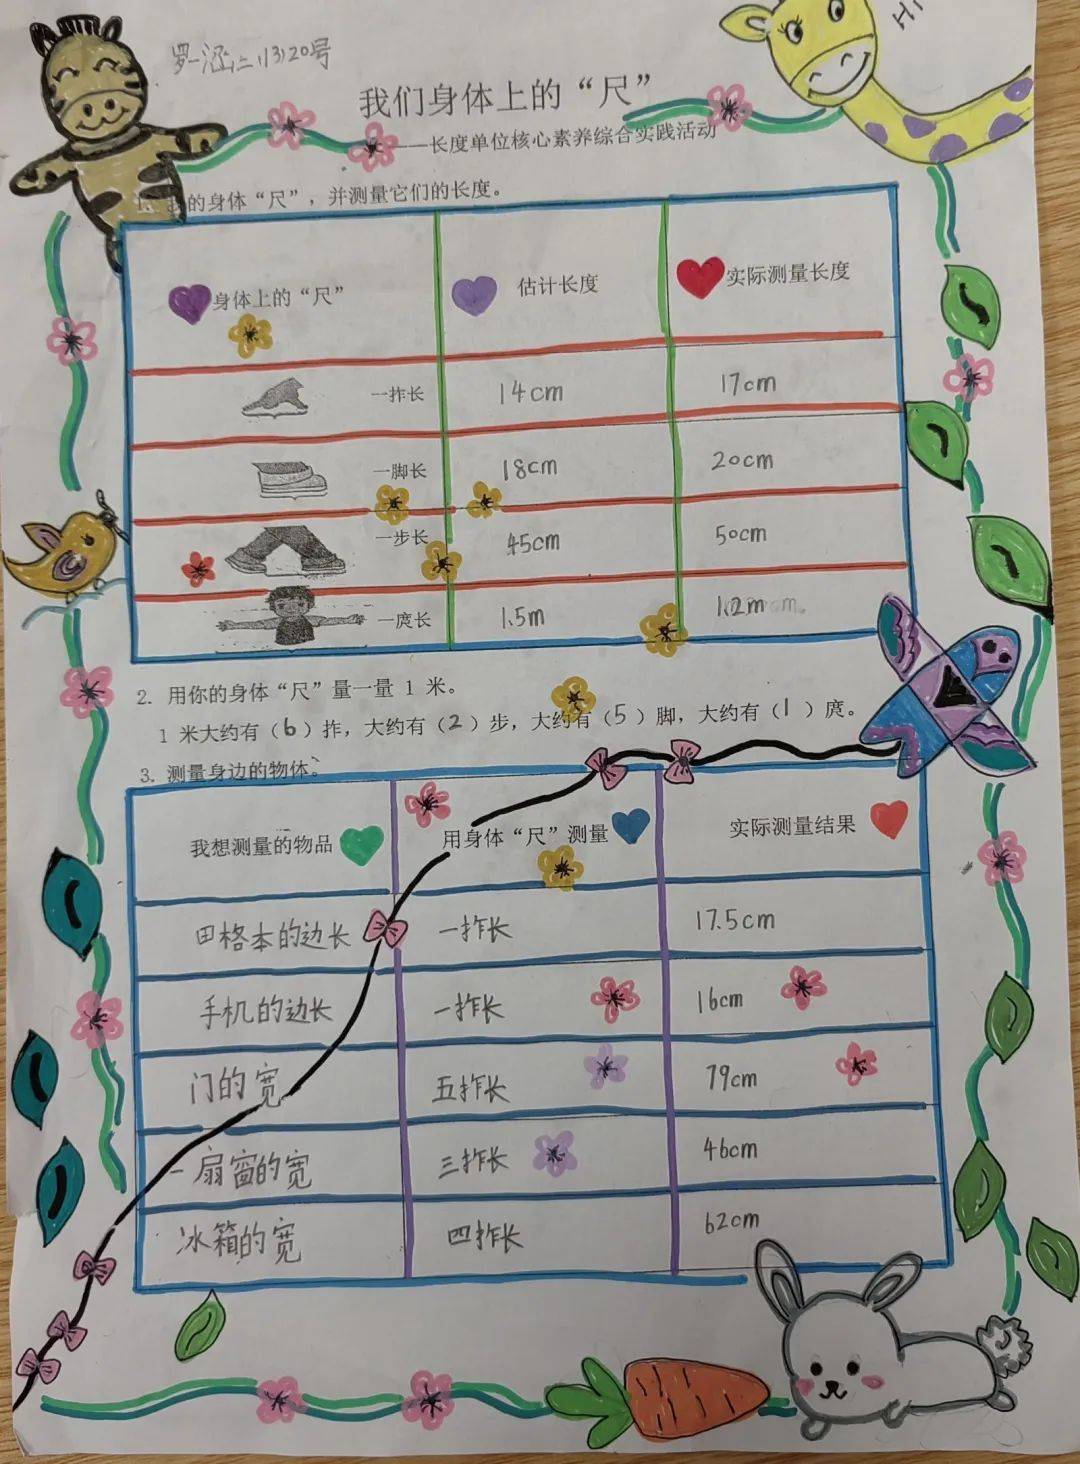 罗一涵二(3)20号
HI
我们身体上的“尺”
——长度单位核心素养综合实践活动
1. 我的身体“尺”，并测量它们的长度。
身体上的“尺” 估计长度 实际测量长度
一拃长 14cm 17cm
一脚长 18cm 20cm
一步长 45cm 50cm
一庹长 1.5m 1.2m
2. 用你的身体“尺”量一量 1 米。
1 米大约有（6）拃，大约有（2）步，大约有（5）脚，大约有（1）庹。
3. 测量身边的物体。
我想测量的物品 用身体“尺”测量 实际测量结果
田格本的边长 一拃长 17.5cm
手机的边长 一拃长 16cm
门的宽 五拃长 79cm
一扇窗的宽 三拃长 46cm
冰箱的宽 四拃长 62cm